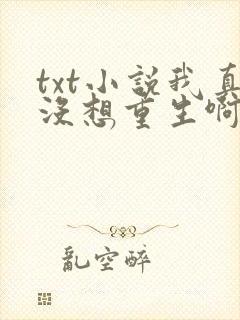 txt小説我真
沒想重生啊
亂空醉